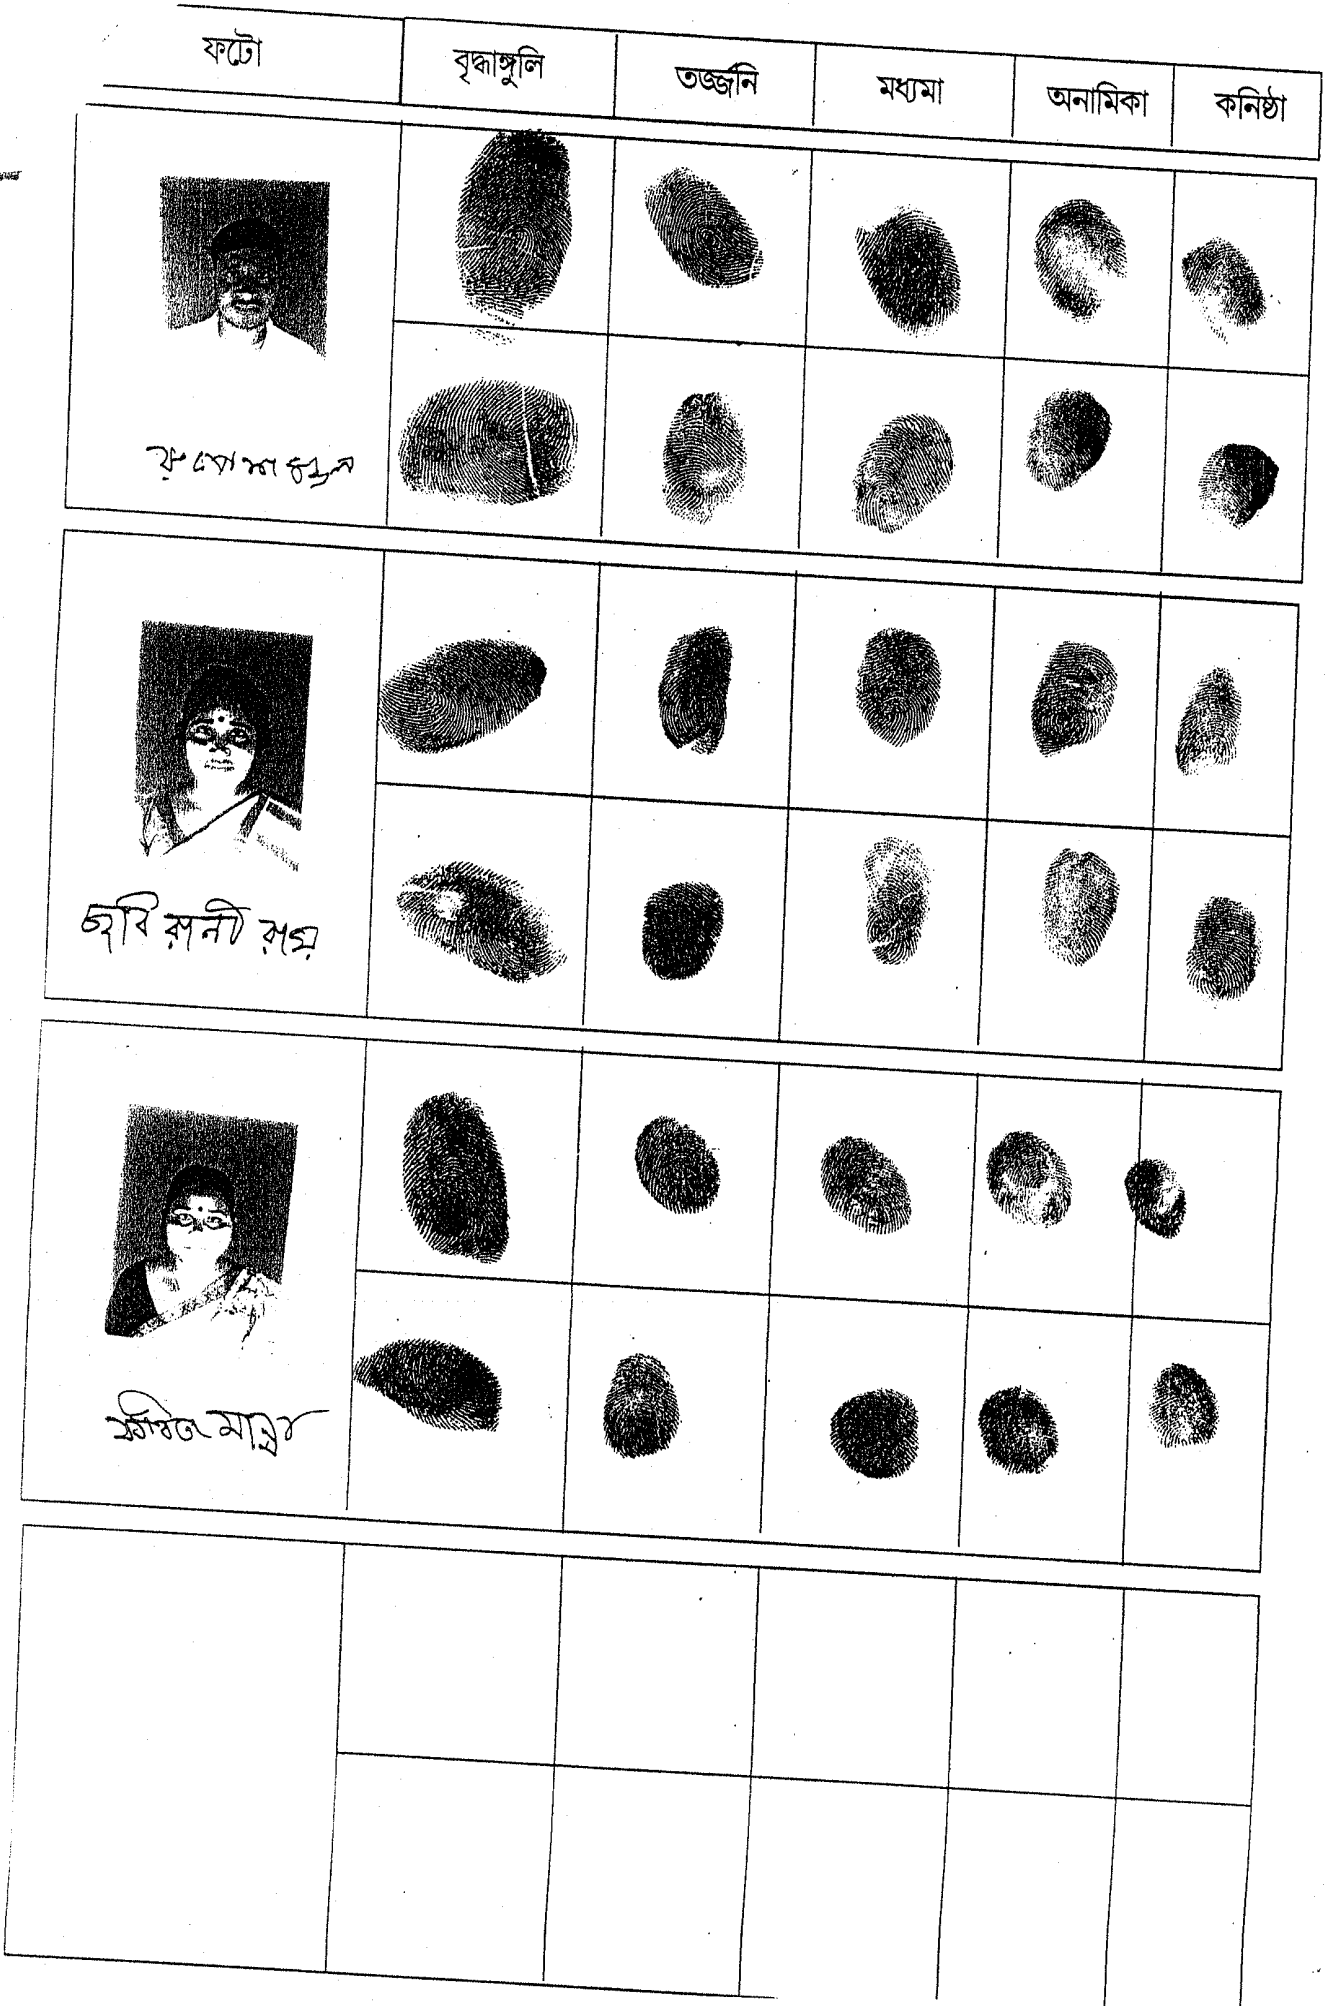 ফটো বৃদ্ধাঙ্গুলি তর্জ্জনি মধ্যমা অনামিকা কনিষ্ঠা
ছবি রানী রায়
কবিতা মান্না